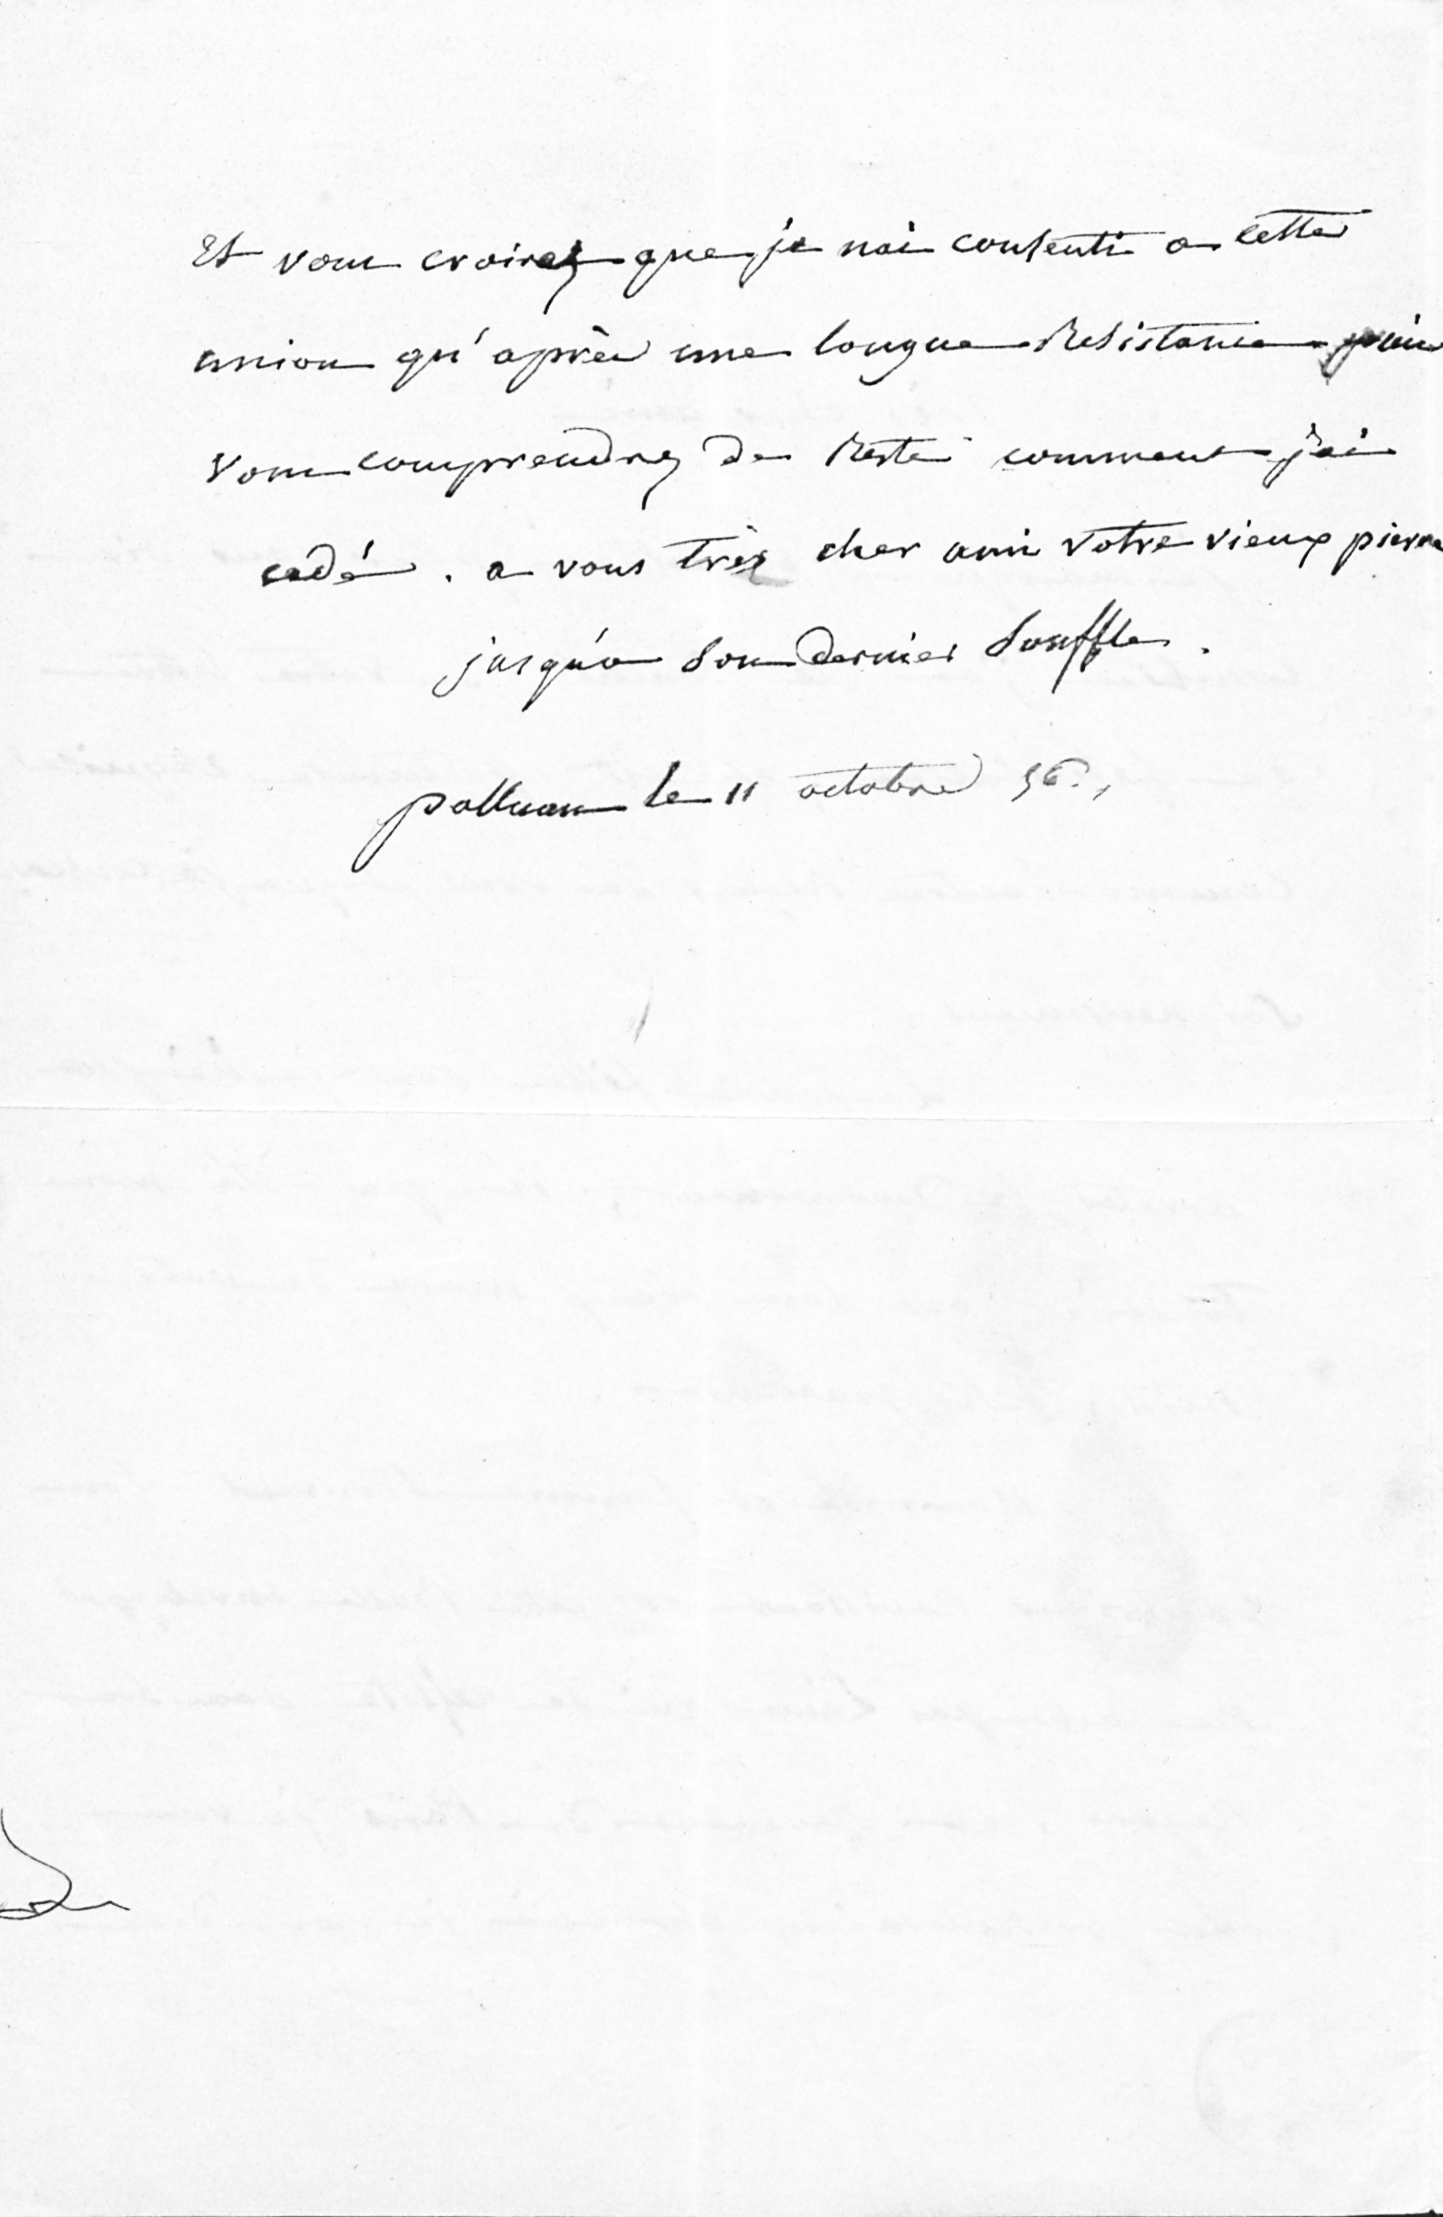 Et vous croirez que je nai consenti a cette
union qu'après une longue Resistance puis
vous comprendrez de Reste comment jai
cedé . a vous très cher ami votre vieux pierre
jusqu'a son dernier souffle .
palluau le 11 octobre 56 .,